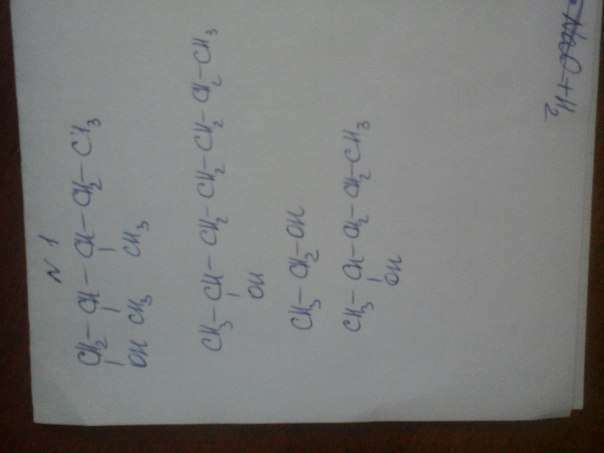 N 1
CH₂–CH–CH–CH₂–CH₃
OH CH₃ CH₃
CH₃–CH–CH₂–CH₂–CH₂–CH₂–CH₃
OH
CH₃–CH₂–OH
CH₃–CH–CH₂–CH₂–CH₃
OH
+H₂